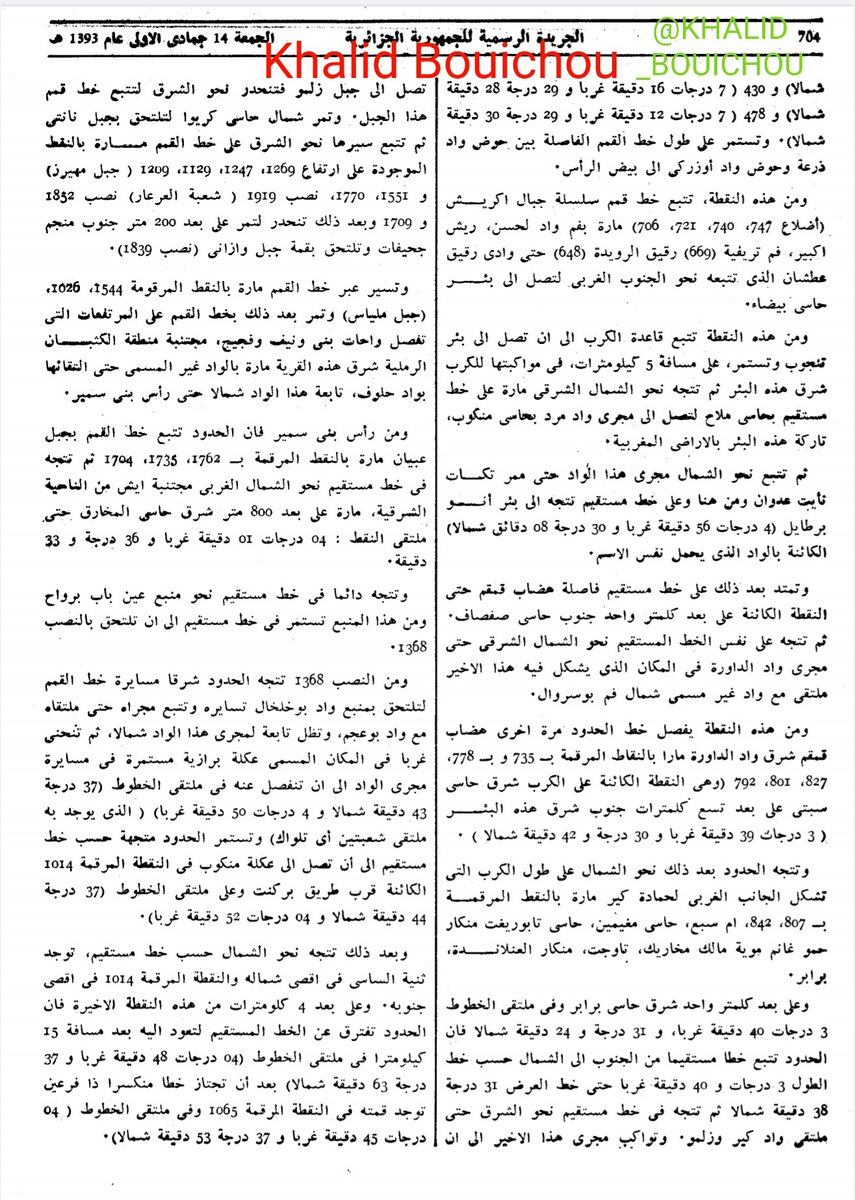 704
الجريدة الرسمية للجمهورية الجزائرية
الجمعة 14 جمادى الاولى عام 1393 هـ
@KHALID
_BOUICHOU
Khalid Bouichou
شمالا) و 430 ( 7 درجات 16 دقيقة غربا و 29 درجة 28 دقيقة
شمالا) و 478 ( 7 درجات 12 دقيقة غربا و 29 درجة 30 دقيقة
شمالا)٠ وتستمر على طول خط القمم الفاصلة بين حوض واد
ذرعة وحوض واد أوزركى الى بيض الرأس٠
ومن هذه النقطة، تتبع خط قمم سلسلة جبال اكريش
(أضلاع 747، 740، 721، 706) مارة بفم واد لحسن، ريش
اكبير، فم تريفية (669) رقيق الرويدة (648) حتى وادى رقيق
عطشان الذى تتبعه نحو الجنوب الغربى لتصل الى بئر
حاسى بيضاء٠
ومن هذه النقطة تتبع قاعدة الكرب الى ان تصل الى بئر
تنجوب وتستمر، على مسافة 5 كيلومترات، فى مواكبتها للكرب
شرق هذه البئر ثم تتجه نحو الشمال الشرقى مارة على خط
مستقيم بحاسى ملاح لتصل الى مجرى واد مرد بحاسى منكوب،
تاركة هذه البئر بالاراضى المغربية٠
ثم تتبع نحو الشمال مجرى هذا الواد حتى ممر تكمات
نأيت عدوان ومن هنا وعلى خط مستقيم تتجه الى بئر أنو
برطايل (4 درجات 56 دقيقة غربا و 30 درجة 08 دقائق شمالا)
الكائنة بالواد الذى يحمل نفس الاسم٠
وتمتد بعد ذلك على خط مستقيم فاصلة هضاب قمقم حتى
النقطة الكائنة على بعد كلمتر واحد جنوب حاسى صفصاف٠
ثم تتجه على نفس الخط المستقيم نحو الشمال الشرقى حتى
مجرى واد الداورة فى المكان الذى يشكل فيه هذا الاخير
ملتقى مع واد غير مسمى شمال فم بوسروال٠
ومن هذه النقطة يفصل خط الحدود مرة اخرى هضاب
قمقم شرق واد الداورة مارا بالنقاط المرقمة بـ 735 و بـ 778،
827، 801، 792 (وهى النقطة الكائنة على الكرب شرق حاسى
سبتى على بعد تسع كلمترات جنوب شرق هذه البئر
( 3 درجات 39 دقيقة غربا و 30 درجة و 42 دقيقة شمالا ) ٠
وتتجه الحدود بعد ذلك نحو الشمال على طول الكرب التى
تشكل الجانب الغربى لحمادة كير مارة بالنقط المرقمة
بـ 807، 842، ام سبع، حاسى مغيمين، حاسى تابوريغت منكار
حمو غانم موية مالك مخاريك، تاوجت، منكار العنلاندة،
برابر٠
وعلى بعد كلمتر واحد شرق حاسى برابر وفى ملتقى الخطوط
3 درجات 40 دقيقة غربا، و 31 درجة و 24 دقيقة شمالا فان
الحدود تتبع خطا مستقيما من الجنوب الى الشمال حسب خط
الطول 3 درجات و 40 دقيقة غربا حتى خط العرض 31 درجة
38 دقيقة شمالا ثم تتجه فى خط مستقيم نحو الشرق حتى
ملتقى واد كير وزلمو٠ وتواكب مجرى هذا الاخير الى ان
تصل الى جبل زلمو فتنحدر نحو الشرق لتتبع خط قمم
هذا الجبل٠ وتمر شمال حاسى كريوا لتلتحق بجبل نانتى
ثم تتبع سيرها نحو الشرق على خط القمم مسارة بالنقط
الموجودة على ارتفاع 1269، 1247، 1129، 1209 ( جبل مهيرز)
و 1551، 1770، نصب 1919 ( شعبة العرعار) نصب 1852
و 1709 وبعد ذلك تنحدر لتمر على بعد 200 متر جنوب منجم
جحيفات وتلتحق بقمة جبل وازانى (نصب 1839)٠
وتسير عبر خط القمم مارة بالنقط المرقومة 1544، 1026،
(جبل ملياس) وتمر بعد ذلك بخط القمم على المرتفعات التى
تفصل واحات بنى ونيف وفجيج، مجتنبة منطقة الكثبان
الرملية شرق هذه القرية مارة بالواد غير المسمى حتى التقائها
بواد حلوف، تابعة هذا الواد شمالا حتى رأس بنى سمير٠
ومن رأس بنى سمير فان الحدود تتبع خط القمم بجبل
عبيان مارة بالنقط المرقمة بـ 1762، 1735، 1704 ثم تتجه
فى خط مستقيم نحو الشمال الغربى مجتنبة ايش من الناحية
الشرقية، مارة على بعد 800 متر شرق حاسى المخارق حتى
ملتقى النقط : 04 درجات 01 دقيقة غربا و 36 درجة و 33
دقيقة٠
وتتجه دائما فى خط مستقيم نحو منبع عين باب برواح
ومن هذا المنبع تستمر فى خط مستقيم الى ان تلتحق بالنصب
1368٠
ومن النصب 1368 تتجه الحدود شرقا مسايرة خط القمم
لتلتحق بمنبع واد بوخلخال تسايره وتتبع مجراه حتى ملتقاه
مع واد بوعجم، وتظل تابعة لمجرى هذا الواد شمالا، ثم تنحنى
غربا فى المكان المسمى عكلة برازية مستمرة فى مسايرة
مجرى الواد الى ان تنفصل عنه فى ملتقى الخطوط (37 درجة
43 دقيقة شمالا و 4 درجات 50 دقيقة غربا) ( الذى يوجد به
ملتقى شعبتين أى تلواك) وتستمر الحدود متجهة حسب خط
مستقيم الى أن تصل الى عكلة منكوب فى النقطة المرقمة 1014
الكائنة قرب طريق بركنت وعلى ملتقى الخطوط (37 درجة
44 دقيقة شمالا و 04 درجات 52 دقيقة غربا)٠
وبعد ذلك تتجه نحو الشمال حسب خط مستقيم، توجد
ثنية الساسى فى اقصى شماله والنقطة المرقمة 1014 فى اقصى
جنوبه٠ وعلى بعد 4 كلومترات من هذه النقطة الاخيرة فان
الحدود تفترق عن الخط المستقيم لتعود اليه بعد مسافة 15
كيلومترا فى ملتقى الخطوط (04 درجات 48 دقيقة غربا و 37
درجة 63 دقيقة شمالا) بعد أن تجتاز خطا منكسرا ذا فرعين
توجد قمته فى النقطة المرقمة 1065 وفى ملتقى الخطوط ( 04
درجات 45 دقيقة غربا و 37 درجة 53 دقيقة شمالا)٠